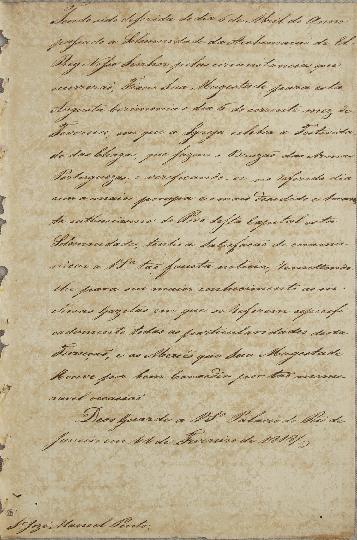 Tendo sido diferida do dia 6 de Abril do Anno
passado a Solemnidade da Acclamação de El
Rey N. Sor. Senhor pelas circunstancias que
occorrerão, Fixou Sua Magestade para esta
Augusta Ceremonia o dia 6 do corrente mez de
Fevereiro, em que a Igreja celebra a Festivida
de das Chagas, que fazem o Brazão das Armas
Portuguezas: e verificando-se no referido dia
com a maior pompa e o mais decidido e
enthusiasmo do Povo desta Capital esta
Solemnidade, tenho a satisfação de commu
nicar a V.Sa. tão fausta noticia, remettendo
lhe para seu maior conhecimento as in
clusas Gazetas em que se referem especifi
cadamente todas as particularidades desta
Funcção, e as Mercês que Sua Magestade
Houve por bem Conceder por tão
occasião
Deos Guarde a V.Sa. Palacio do Rio de
Janeiro em de Fevereiro de 1818
Sr. Joze Manoel Pinto.